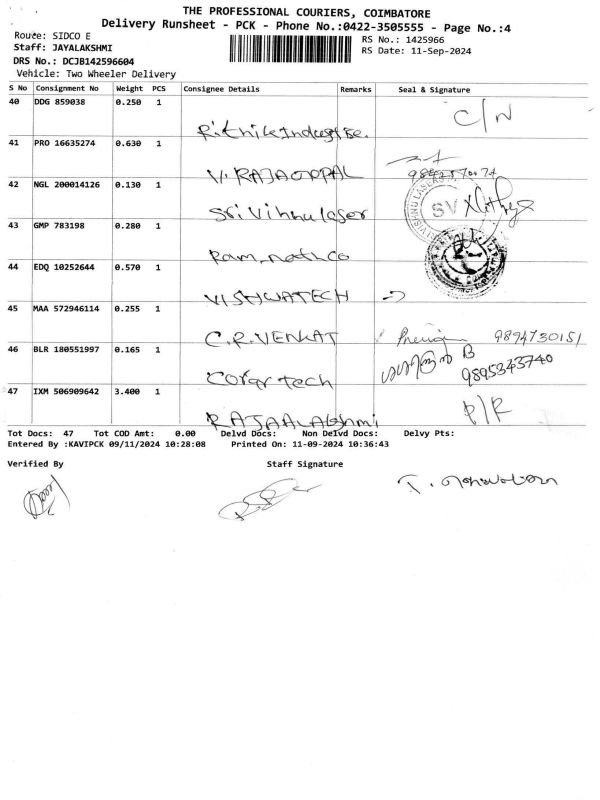 THE PROFESSIONAL COURIERS, COIMBATORE
Delivery Runsheet - PCK - Phone No.:0422-3505555 - Page No.:4
Route: SIDCO E
RS No.: 1425966
Staff: JAYALAKSHMI
RS Date: 11-Sep-2024
DRS No.: DCJB142596604
Vehicle: Two Wheeler Delivery
S No Consignment No Weight PCS Consignee Details Remarks Seal & Signature
40 DDG 859038 0.250 1
C/N
41 PRO 16635274 0.630 1
V. RAJAGOPAL
42 NGL 200014126 0.130 1
Sri Vihnu laser
SV
43 GMP 783198 0.280 1
Ram nath co
44 EDQ 10252644 0.570 1
VISHWATECH
45 MAA 572946114 0.255 1
C.R.VENKAT 9894730151
46 BLR 180551997 0.165 1
B
9895343740
47 IXM 506909642 3.400 1
RAJAALAkshmi
Tot Docs: 47 Tot COD Amt: 0.00 Delvd Docs: Non Delvd Docs: Delvy Pts:
Entered By :KAVIPCK 09/11/2024 10:28:08 Printed On: 11-09-2024 10:36:43
Verified By Staff Signature